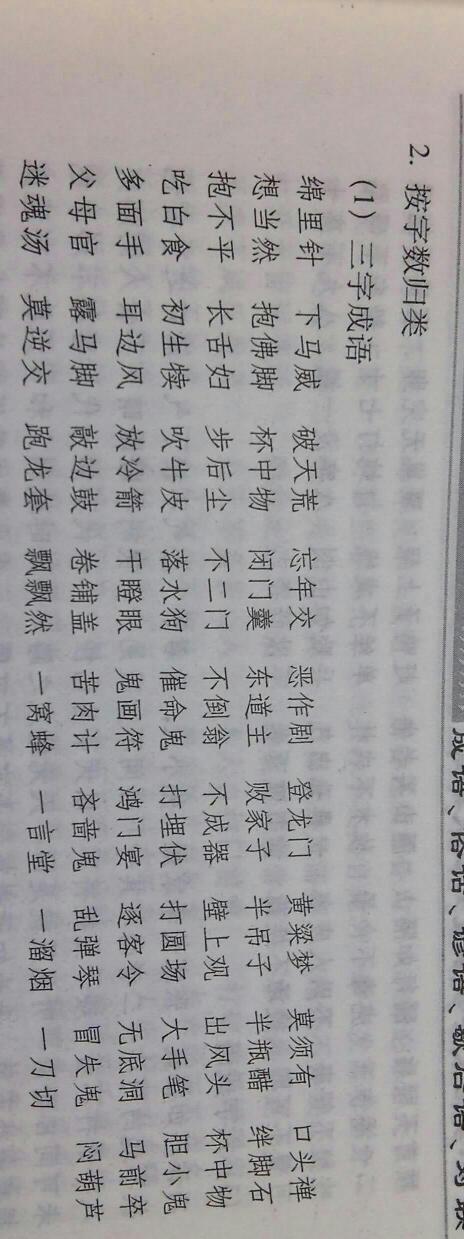 成语、俗语、谚语、歇后语、对联
2. 按字数归类
(1) 三字成语
绵里针 下马威 破天荒 忘年交 恶作剧 登龙门 黄粱梦 莫须有 口头禅
想当然 抱佛脚 杯中物 闭门羹 东道主 败家子 半吊子 半瓶醋 绊脚石
抱不平 长舌妇 步后尘 不二门 不倒翁 不成器 壁上观 出风头 杯中物
吃白食 初生犊 吹牛皮 落水狗 催命鬼 打埋伏 打圆场 大手笔 胆小鬼
多面手 耳边风 放冷箭 干瞪眼 鬼画符 鸿门宴 逐客令 无底洞 马前卒
父母官 露马脚 敲边鼓 卷铺盖 苦肉计 吝啬鬼 乱弹琴 冒失鬼 闷葫芦
迷魂汤 莫逆交 跑龙套 飘飘然 一窝蜂 一言堂 一溜烟 一刀切